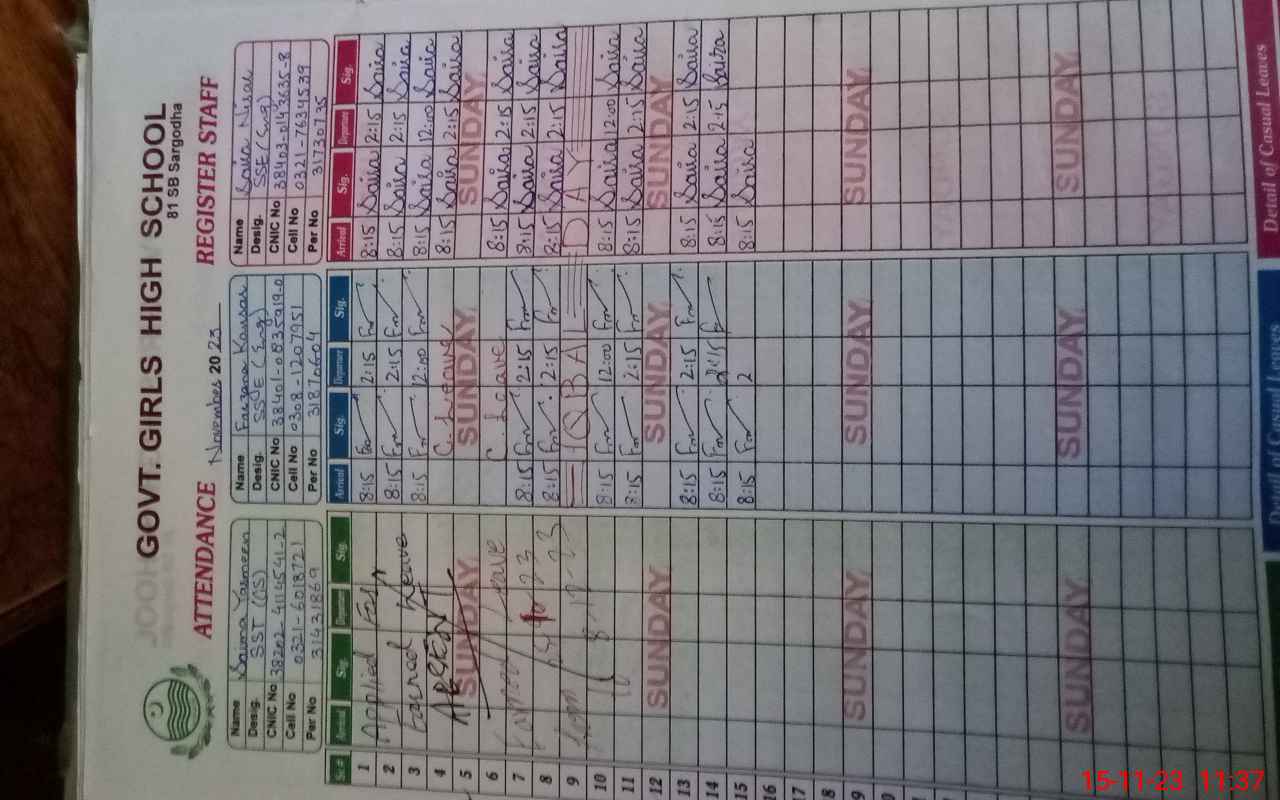 GOVT. GIRLS HIGH SCHOOL
81 SB Sargodha
ATTENDANCE November 2023 REGISTER STAFF
Name Saima Yasmeen
Desig. SST (CS)
CNIC No 38202-4114541-2
Cell No 0321-6018721
Per No 31431869
Name Farzana Kausar
Desig. SSE (Eng)
CNIC No 38401-0835919-0
Cell No 0308-1207951
Per No 31870604
Name Saira Nisar
Desig. SSE (Eng)
CNIC No 38403-0143635-8
Cell No 0321-7634539
Per No 31730735
Sr.# Arrival Sig. Departure Sig. Arrival Sig. Departure Sig. Arrival Sig. Departure Sig.
1 Applied For 8:15 2:15 8:15 Saira 2:15 Saira
2 8:15 2:15 8:15 Saira 2:15 Saira
3 Earned Leave 8:15 12:00 8:15 Saira 12:00 Saira
4 ABSENT C. Leave 8:15 Saira 2:15 Saira
5 SUNDAY SUNDAY SUNDAY
6 Leave C. Leave 8:15 Saira 2:15 Saira
7 8:15 2:15 8:15 Saira 2:15 Saira
8 8:15 2:15 8:15 Saira 2:15 Saira
9 IQBAL DAY
10 8:15 12:00 8:15 Saira 12:00 Saira
11 8:15 2:15 8:15 Saira 2:15 Saira
12 SUNDAY SUNDAY SUNDAY
13 8:15 2:15 8:15 Saira 2:15 Saira
14 8:15 2:15 8:15 Saira 2:15 Saira
15 8:15 2 8:15 Saira
16
17
18
19 SUNDAY SUNDAY SUNDAY
SUNDAY SUNDAY SUNDAY
Detail of Casual Leaves
Detail of Casual Leaves
15-11-23 11:37